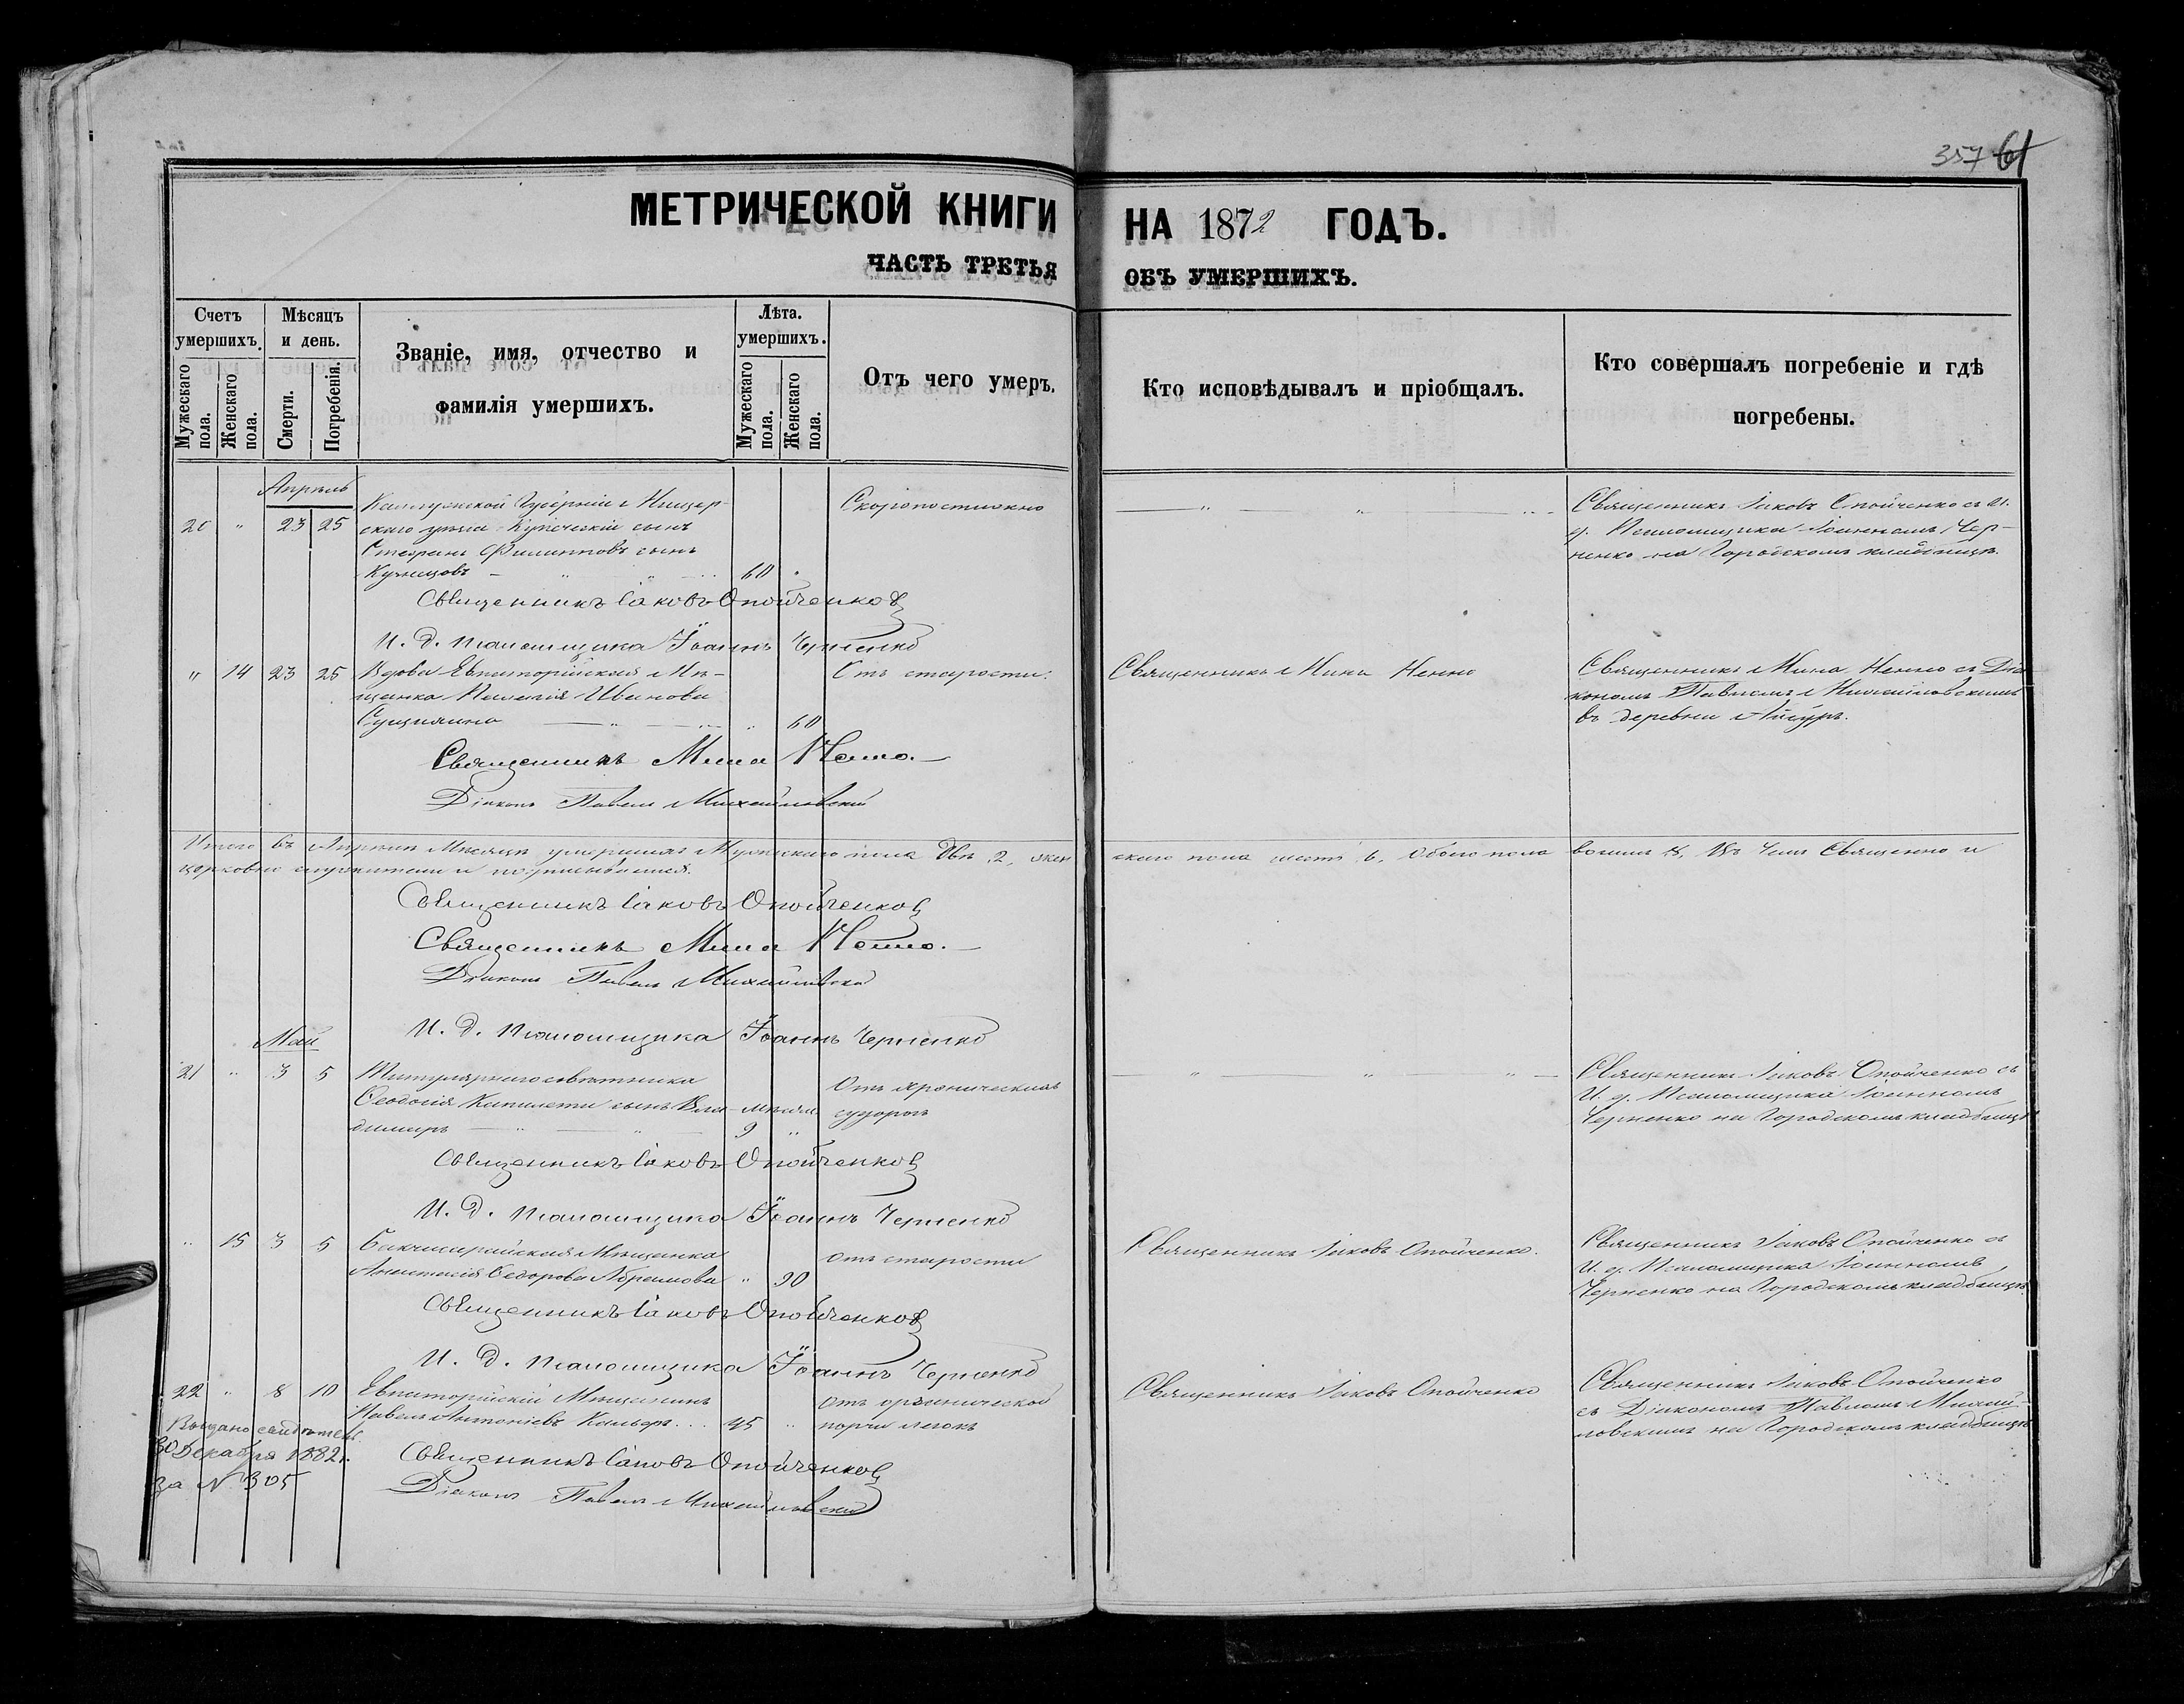 357 61
МЕТРИЧЕСКОЙ КНИГИ НА 1872 ГОДЪ.
ЧАСТЬ ТРЕТЬЯ ОБЪ УМЕРШИХЪ.
Счетъ умершихъ.
Мужескаго пола.
Женскаго пола.
Мѣсяцъ и день.
Смерти.
Погребенія.
Званіе, имя, отчество и
фамилія умершихъ.
Лѣта. умершихъ.
Мужескаго пола.
Женскаго пола.
Отъ чего умеръ.
Кто исповѣдывалъ и пріобщалъ.
Кто совершалъ погребеніе и гдѣ
погребены.
Апрѣль
20 " 23 25
Калужской Губерніи
скаго уѣзда Купеческій сынъ
Стефанъ Филипповъ сынъ
Кузнецовъ 60 "
Скоропостижно
Священникъ Іаковъ Опойченко съ И.
д. Псаломщика Іоанномъ Чер-
ненко на Городскомъ кладбищѣ.
Священникъ Іаковъ Опойченко
И. д. псаломщика Іоаннъ Черненко
" 14 23 25
Вдова Евпаторійская Мѣ-
щанка Пелагія Иванова
" 60
Отъ старости.
Священникъ Мина Ненно
Священникъ Мина Ненно съ Діа
кономъ Павломъ Михайловскимъ
въ деревни
Священникъ Мина Ненно.
Діаконъ Павелъ Михайловскій
Итого въ Апрѣлѣ Мѣсяцѣ умершихъ Мужескаго пола два 2, жен
скаго пола шесть 6, Обоего пола восемь 8, Въ чемъ Священно и
церковно служители и подписываемся.
Священникъ Іаковъ Опойченко
Священникъ Мина Ненно.
Діаконъ Павелъ Михайловскій
И. д. псаломщика Іоаннъ Черненко
Май
21 " 3 5
Титулярнаго совѣтника
Феодосія Капилети сынъ Вла-
димиръ
мѣсяц.
9 "
Отъ хроническихъ
судорогъ
Священникъ Іаковъ Опойченко съ
И. д. Псаломщика Іоанномъ
Черненко на Городскомъ кладбищѣ
Священникъ Іаковъ Опойченко
И. д. псаломщика Іоаннъ Черненко
" 15 3 5
Бахчисарайская Мѣщанка
Анастасія Федорова Абрамова " 90
отъ старости
Священникъ Іаковъ Опойченко.
Священникъ Іаковъ Опойченко съ
И. д. Псаломщика Іоанномъ
Черненко на Городскомъ кладбищѣ
Священникъ Іаковъ Опойченко
И. д. псаломщика Іоаннъ Черненко
22 " 8 10
Евпаторійскій Мѣщанинъ
Павелъ Антоніевъ 45 "
отъ органической
порчи легкъ
Священникъ Іаковъ Опойченко
Священникъ Іаковъ Опойченко
съ Діакономъ Павломъ Михай-
ловскимъ на Городскомъ кладбищѣ
Выдано свидѣтел.
30 Декабря 1882 г.
за N 305
Священникъ Іаковъ Опойченко
Діаконъ Павелъ Михайловскій